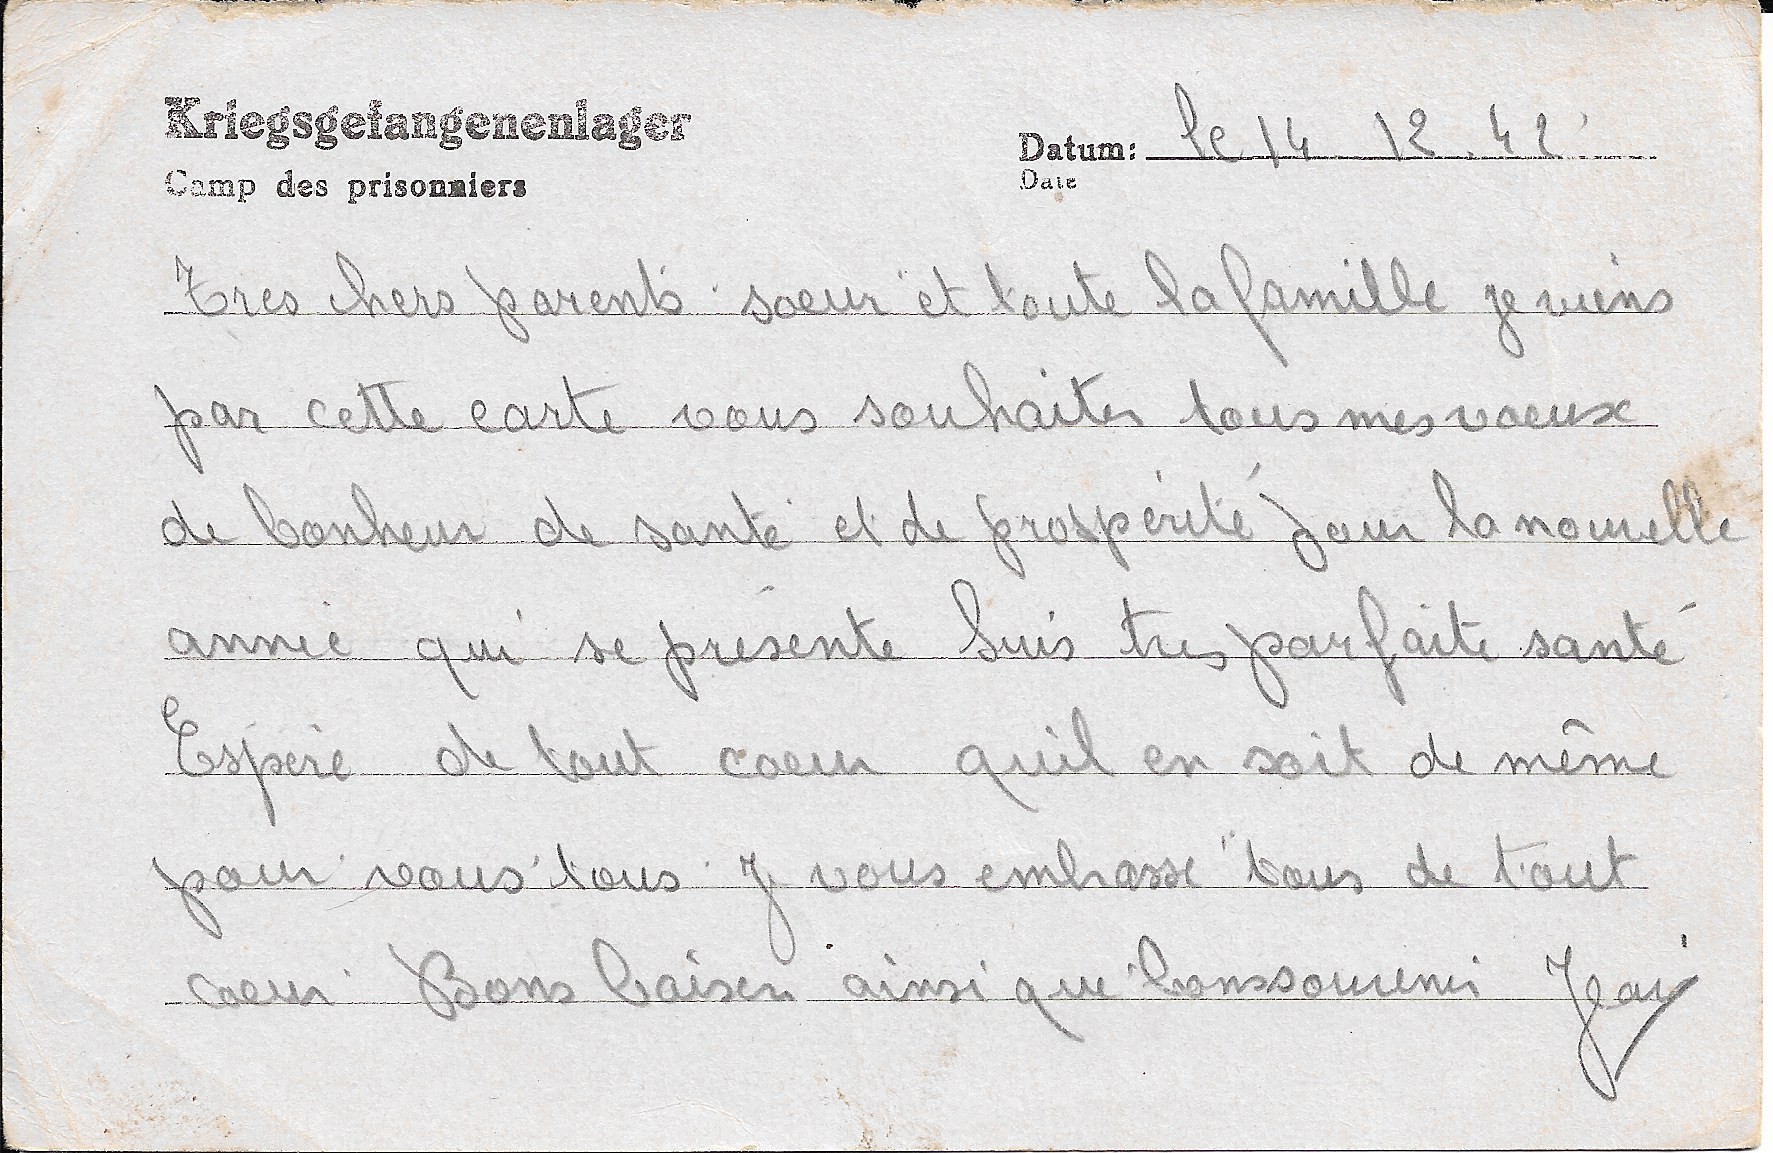 Kriegsgefangenenlager
Camp des prisonniers
Datum: le 14 12. 42
Date
Tres chers parents soeur et toute la famille je viens
par cette carte vous souhaiter tous mes voeux
de bonheur de santé et de prospérité pour la nouvelle
année qui se présente Suis tres parfaite santé
Espere de tout coeur quil en soit de même
pour vous tous Je vous embrasse tous de tout
coeur Bons baisers ainsi que bons souvenirs Jean